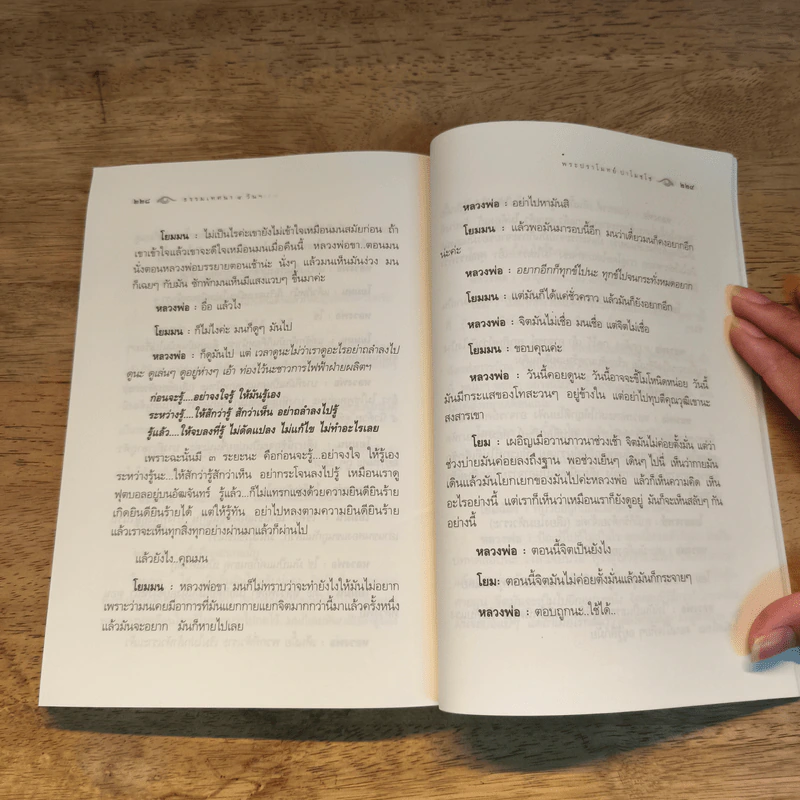 ๒๒๘ ธรรมเทศนา ๗ วันฯ...
โยมมน : ไม่เป็นไรค่ะเขายังไม่เข้าใจเหมือนมนสมัยก่อน ถ้า
เขาเข้าใจแล้วเขาจะดีใจเหมือนมนเมื่อคืนนี้ หลวงพ่อขา..ตอนมน
นั่งตอนหลวงพ่อบรรยายตอนเช้าน่ะ นั่งๆ แล้วมนเห็นมันง่วง มน
ก็เฉยๆ กับมัน ซักพักมนเห็นมีแสงแวบๆ ขึ้นมาค่ะ
หลวงพ่อ : อื่อ แล้วไง
โยมมน : ก็ไม่ไงค่ะ มนก็ดูๆ มันไป
หลวงพ่อ : ก็ดูมันไป แต่ เวลาดูนะไม่ว่าเราดูอะไรอย่าถลำลงไป
ดูนะ ดูเล่นๆ ดูอยู่ห่างๆ เอ้า ท่องไว้นะชาวการไฟฟ้าฝ่ายผลิตฯ
ก่อนจะรู้....อย่าจงใจรู้ ให้มันรู้เอง
ระหว่างรู้....ให้สักว่ารู้ สักว่าเห็น อย่าถลำลงไปรู้
รู้แล้ว....ให้จบลงที่รู้ ไม่ดัดแปลง ไม่แก้ไข ไม่ทำอะไรเลย
เพราะฉะนั้นมี ๓ ระยะนะ คือก่อนจะรู้...อย่าจงใจ ให้รู้เอง
ระหว่างรู้นะ...ให้สักว่ารู้สักว่าเห็น อย่ากระโจนลงไปรู้ เหมือนเราดู
ฟุตบอลอยู่บนอัฒจันทร์ รู้แล้ว...ก็ไม่แทรกแซงด้วยความยินดียินร้าย
เกิดยินดียินร้ายได้ แต่ให้รู้ทัน อย่าไปหลงตามความยินดียินร้าย
แล้วเราจะเห็นทุกสิ่งทุกอย่างผ่านมาแล้วก็ผ่านไป
แล้วยังไง..คุณมน
โยมมน : หลวงพ่อขา มนก็ไม่ทราบว่าจะทำยังไงให้มันไม่อยาก
เพราะว่ามนเคยมีอาการที่มันแยกกายแยกจิตมากกว่านี้มาแล้วครั้งหนึ่ง
แล้วมันจะอยาก มันก็หายไปเลย
พระปราโมทย์ ปาโมชฺโช ๒๒๙
หลวงพ่อ : อย่าไปหามันสิ
โยมมน : แล้วพอมันมารอบนี้อีก มนว่าเดี๋ยวมนก็คงอยากอีก
น่ะค่ะ
หลวงพ่อ : อยากอีกก็ทุกข์ไปนะ ทุกข์ไปจนกระทั่งหมดอยาก
โยมมน : แต่มันก็ได้แค่ชั่วคราว แล้วมันก็ยังอยากอีก
หลวงพ่อ : จิตมันไม่เชื่อ มนเชื่อ แต่จิตไม่เชื่อ
โยมมน : ขอบคุณค่ะ
หลวงพ่อ : วันนี้คอยดูนะ วันนี้อาจจะขี้โมโหนิดหน่อย วันนี้
มันมีกระแสของโทสะวนๆ อยู่ข้างใน แต่อย่าไปทุบตีคุณวุฒิเขานะ
สงสารเขา
โยม : เผอิญเมื่อวานภาวนาช่วงเช้า จิตมันไม่ค่อยตั้งมั่น แต่ว่า
ช่วงบ่ายมันค่อยลงถึงฐาน พอช่วงเย็นๆ เดินๆ ไปนี่ เห็นว่ากายมัน
เดินแล้วมันโยกเยกของมันไปค่ะหลวงพ่อ แล้วก็เห็นความคิด เห็น
อะไรอย่างนี้ แต่เราก็เห็นว่าเหมือนเราก็ยังดูอยู่ มันก็จะเห็นสลับๆ กัน
อย่างนี้
หลวงพ่อ : ตอนนี้จิตเป็นยังไง
โยม: ตอนนี้จิตมันไม่ค่อยตั้งมั่นแล้วมันก็กระจายๆ
หลวงพ่อ : ตอบถูกนะ..ใช้ได้..